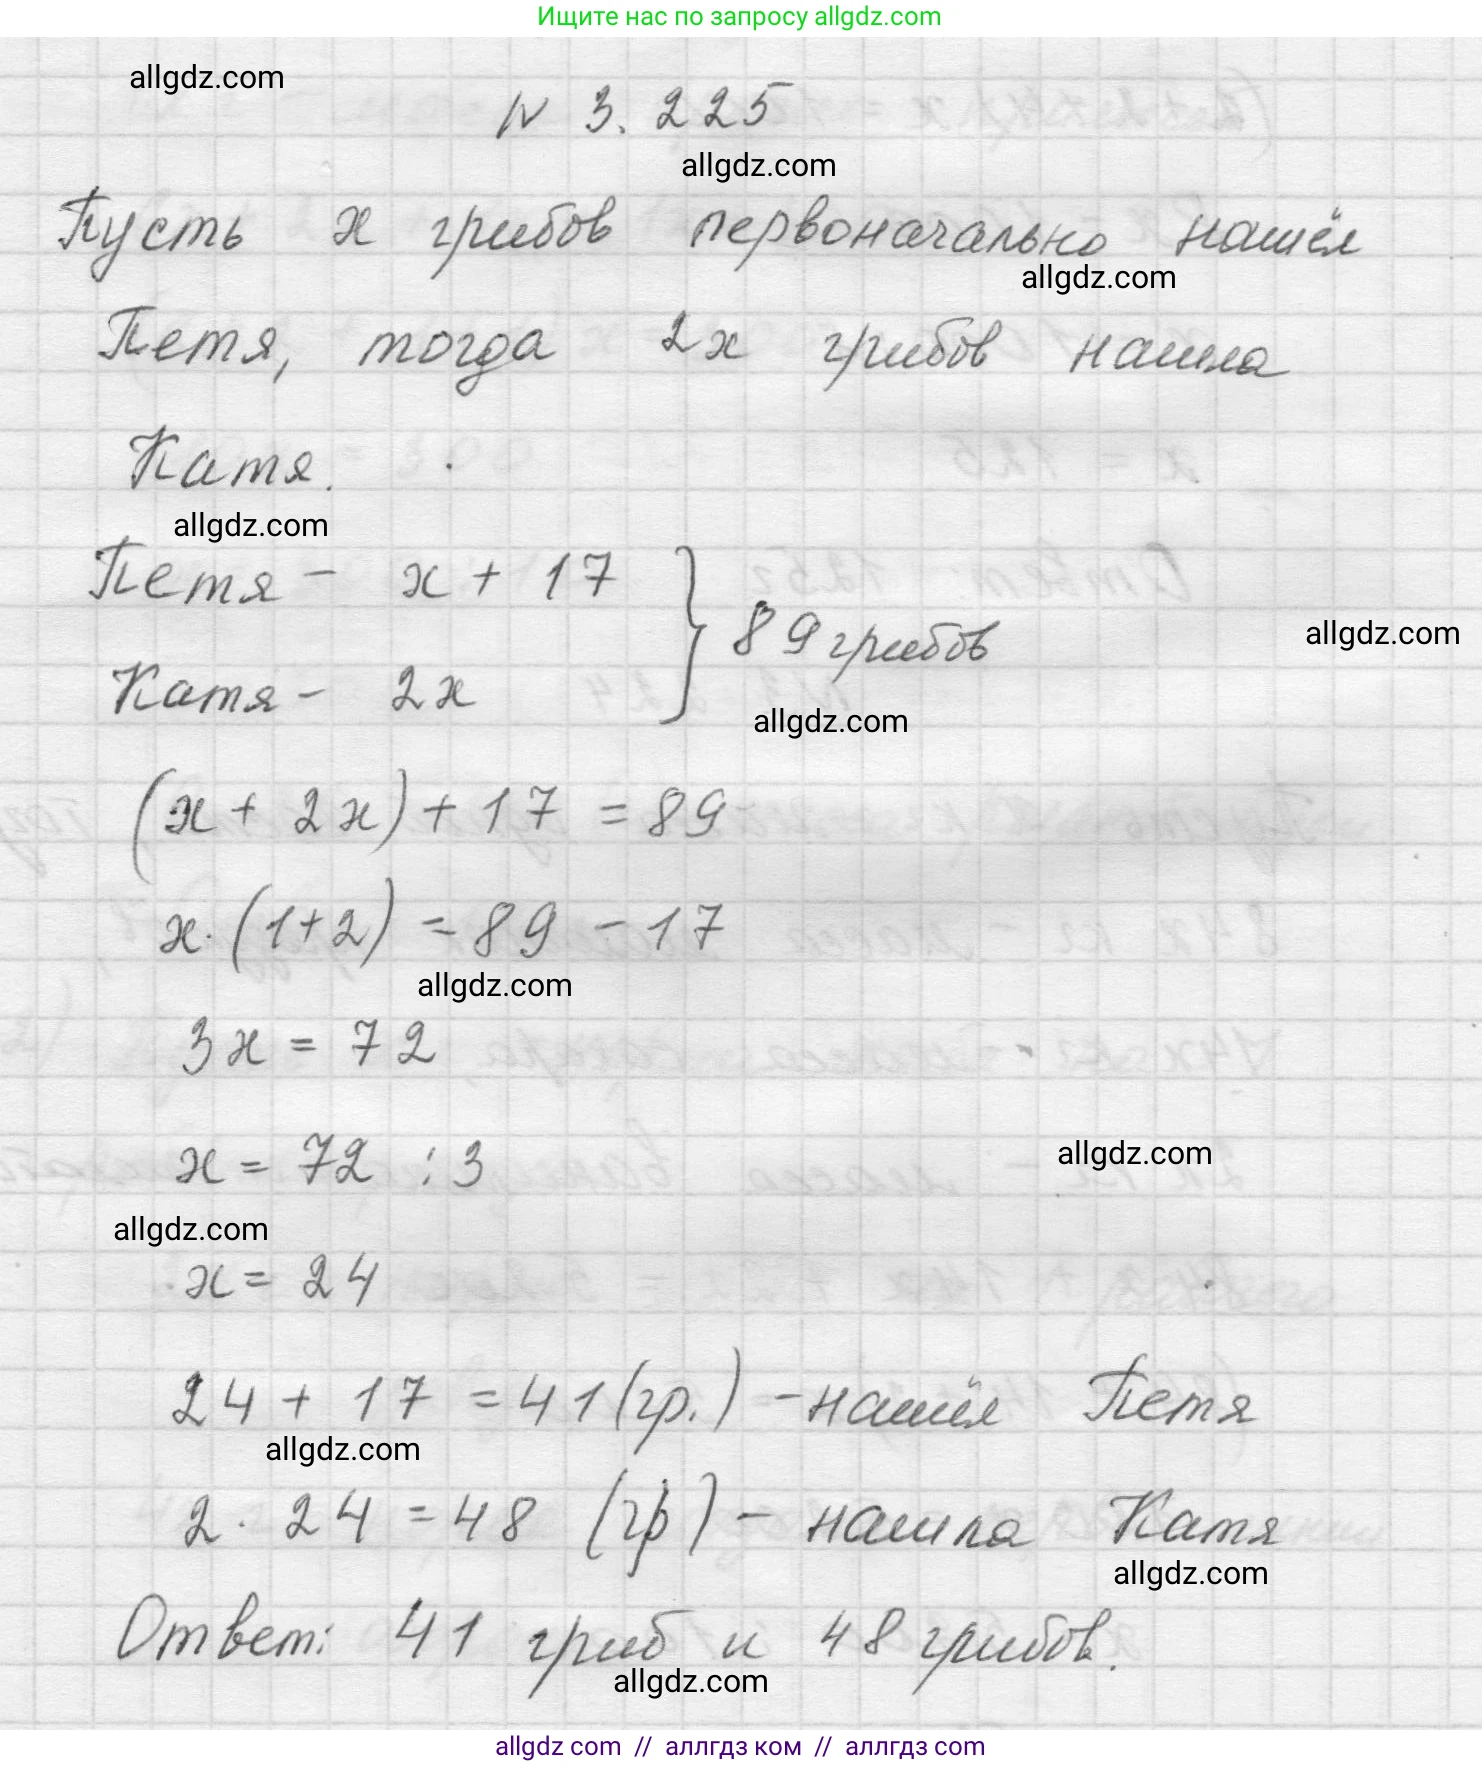 Ищите нас по запросу allgdz.com
allgdz.com
N 3.225
allgdz.com
Пусть x грибов первоначально нашёл
allgdz.com
Петя, тогда 2x грибов нашла
Катя.
allgdz.com
Петя - x + 17 } 89 грибов
allgdz.com
Катя - 2x
allgdz.com
(x + 2x) + 17 = 89
x · (1+2) = 89 - 17
allgdz.com
3x = 72
x = 72 : 3
allgdz.com
allgdz.com
x = 24
24 + 17 = 41 (гр.) - нашёл Петя
allgdz.com
2 · 24 = 48 (гр) - нашла Катя
allgdz.com
Ответ: 41 гриб и 48 грибов.
allgdz.com
allgdz com // аллгдз ком // аллгдз com